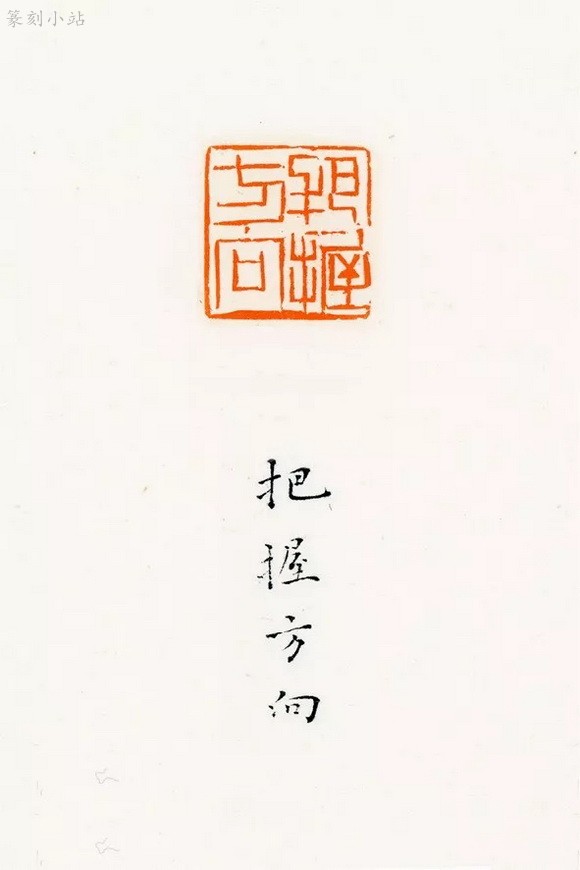 篆刻小站
把握方向
把握方向